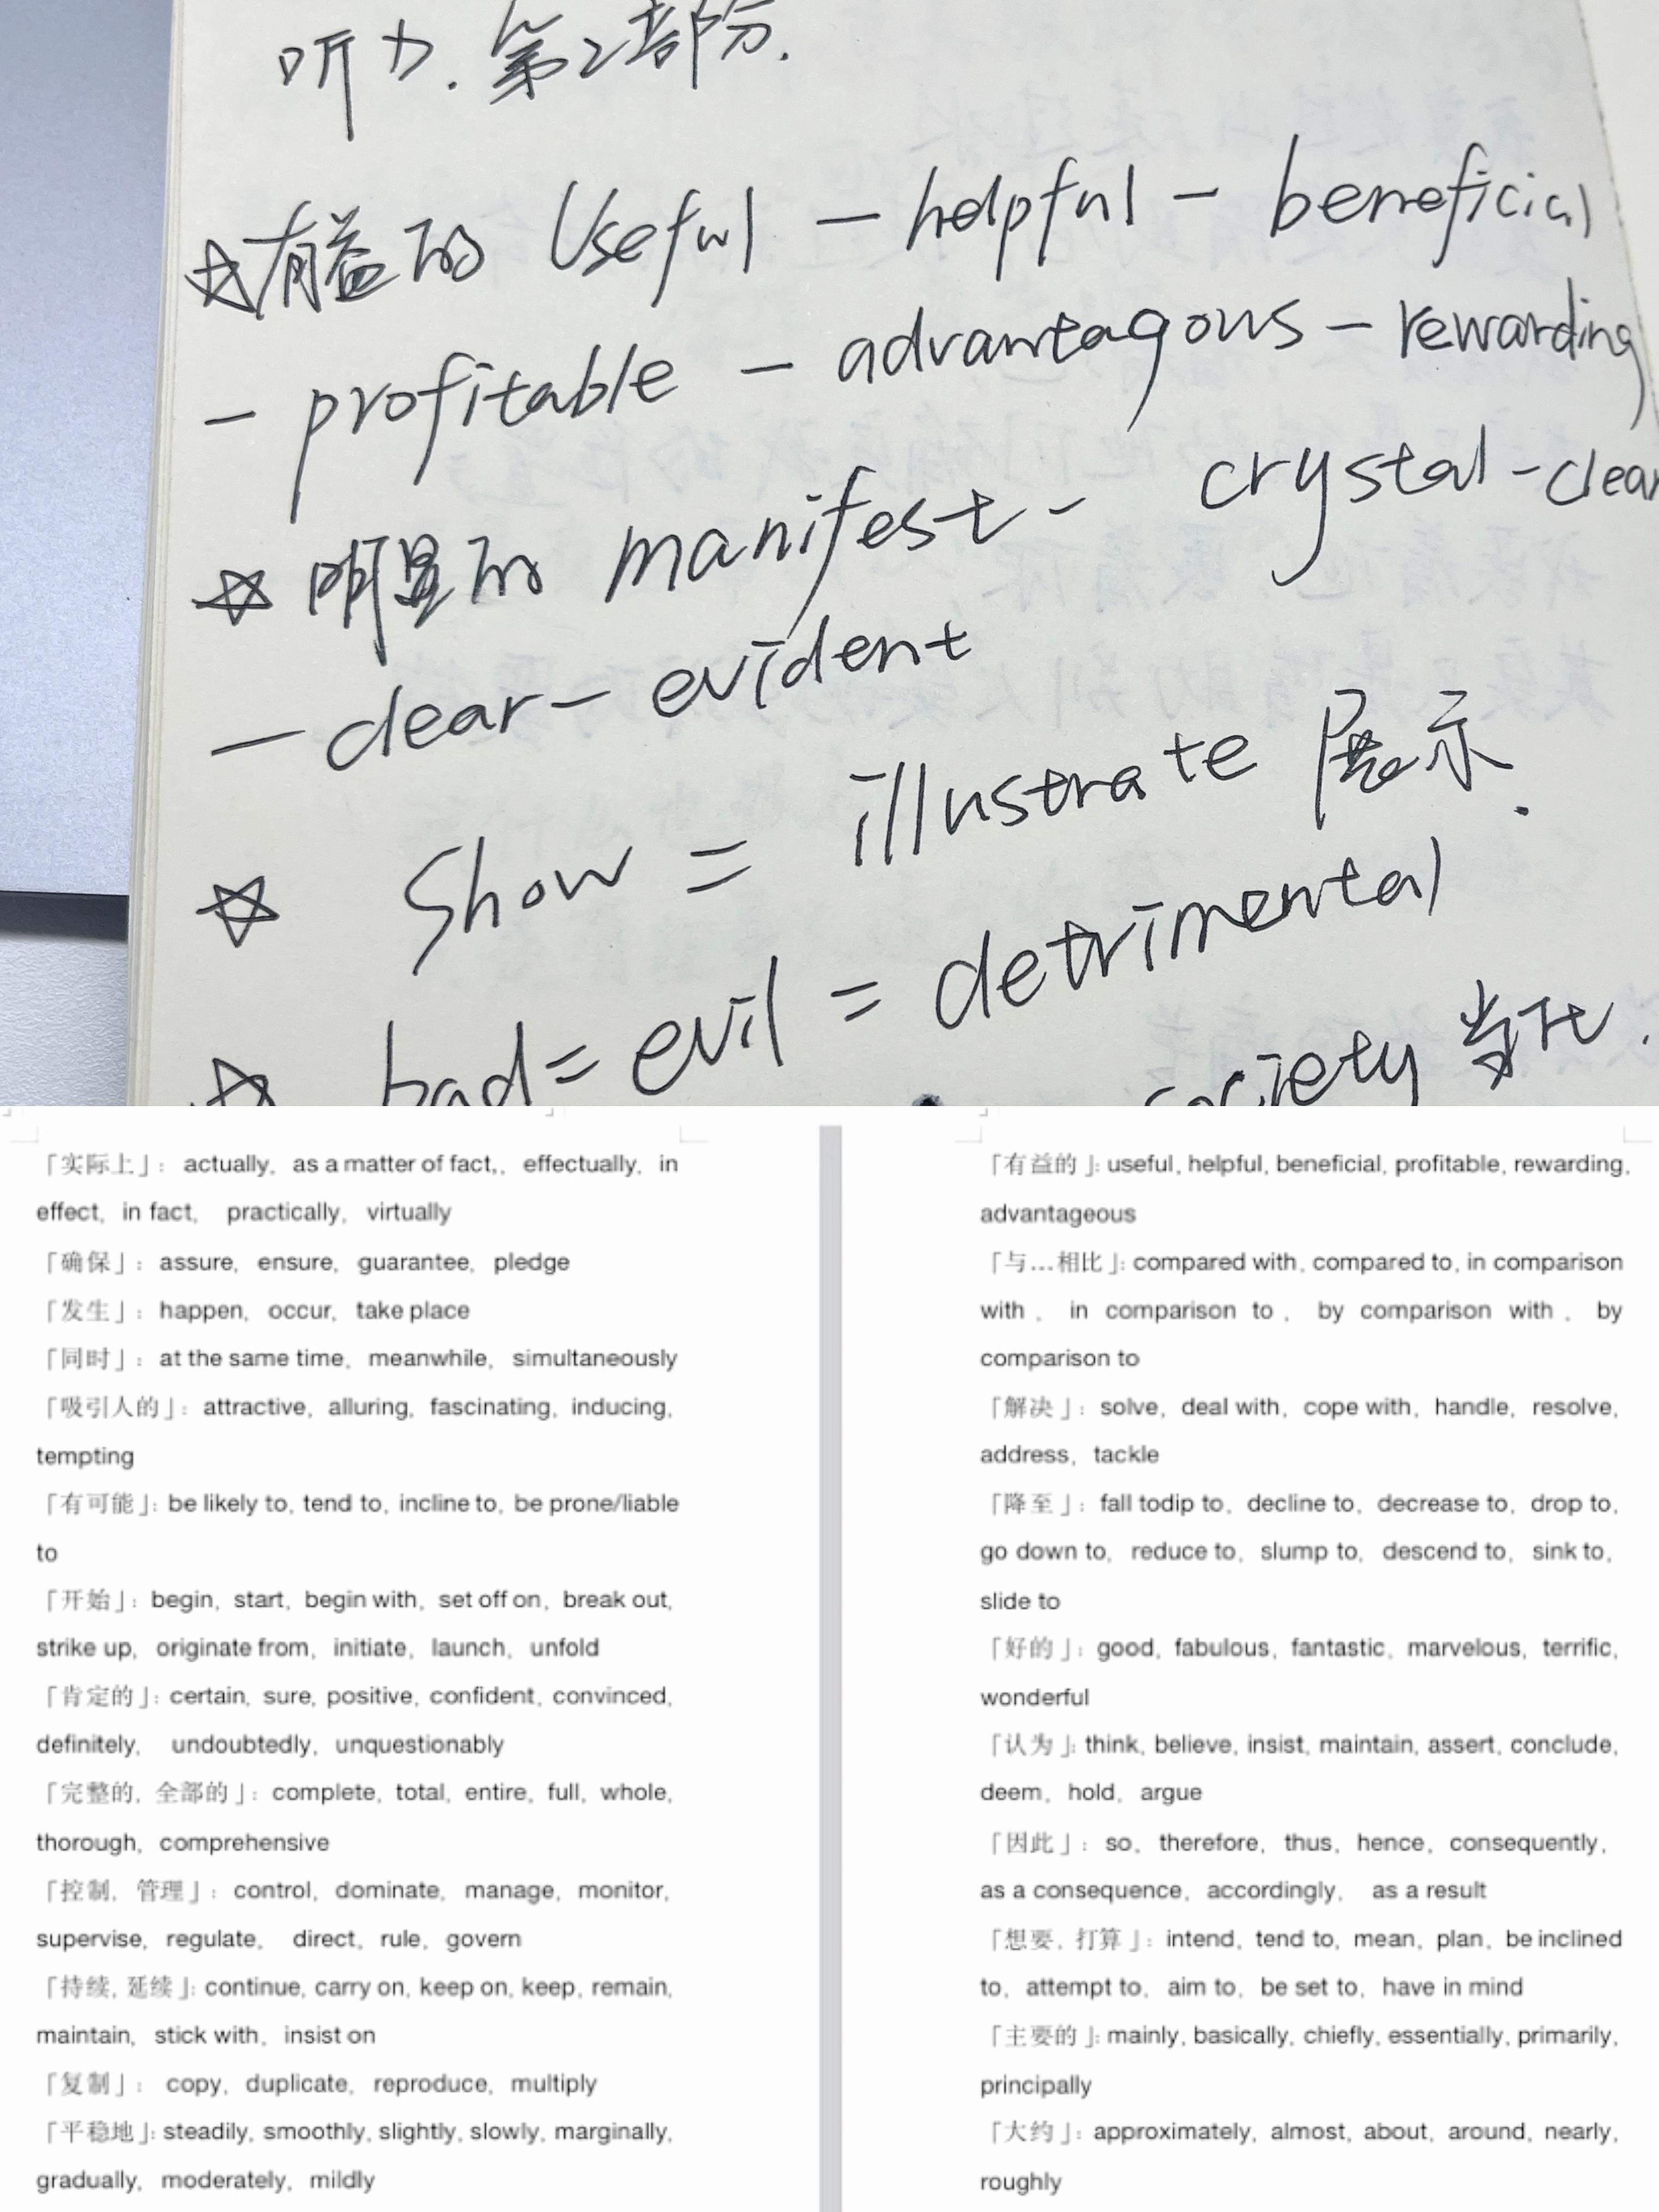 听力.第2部分.
☆有益的 Useful – helpful – beneficial
– profitable – advantagous – rewarding
☆明显的 manifest – crystal-clear
– clear – evident
☆ Show = illustrate 展示.
☆ bad = evil = detrimental
society
「实际上」： actually, as a matter of fact,, effectually, in
effect, in fact, practically, virtually
「确保」： assure, ensure, guarantee, pledge
「发生」： happen, occur, take place
「同时」： at the same time, meanwhile, simultaneously
「吸引人的」： attractive, alluring, fascinating, inducing,
tempting
「有可能」: be likely to, tend to, incline to, be prone/liable
to
「开始」: begin, start, begin with, set off on, break out,
strike up, originate from, initiate, launch, unfold
「肯定的」: certain, sure, positive, confident, convinced,
definitely, undoubtedly, unquestionably
「完整的, 全部的」： complete, total, entire, full, whole,
thorough, comprehensive
「控制, 管理」： control, dominate, manage, monitor,
supervise, regulate, direct, rule, govern
「持续, 延续」: continue, carry on, keep on, keep, remain,
maintain, stick with, insist on
「复制」： copy, duplicate, reproduce, multiply
「平稳地」: steadily, smoothly, slightly, slowly, marginally,
gradually, moderately, mildly
「有益的」: useful, helpful, beneficial, profitable, rewarding,
advantageous
「与…相比」: compared with, compared to, in comparison
with , in comparison to , by comparison with , by
comparison to
「解决」： solve, deal with, cope with, handle, resolve,
address, tackle
「降至」： fall todip to, decline to, decrease to, drop to,
go down to, reduce to, slump to, descend to, sink to,
slide to
「好的」： good, fabulous, fantastic, marvelous, terrific,
wonderful
「认为」: think, believe, insist, maintain, assert, conclude,
deem, hold, argue
「因此」： so, therefore, thus, hence, consequently,
as a consequence, accordingly, as a result
「想要, 打算」： intend, tend to, mean, plan, be inclined
to, attempt to, aim to, be set to, have in mind
「主要的」: mainly, basically, chiefly, essentially, primarily,
principally
「大约」: approximately, almost, about, around, nearly,
roughly